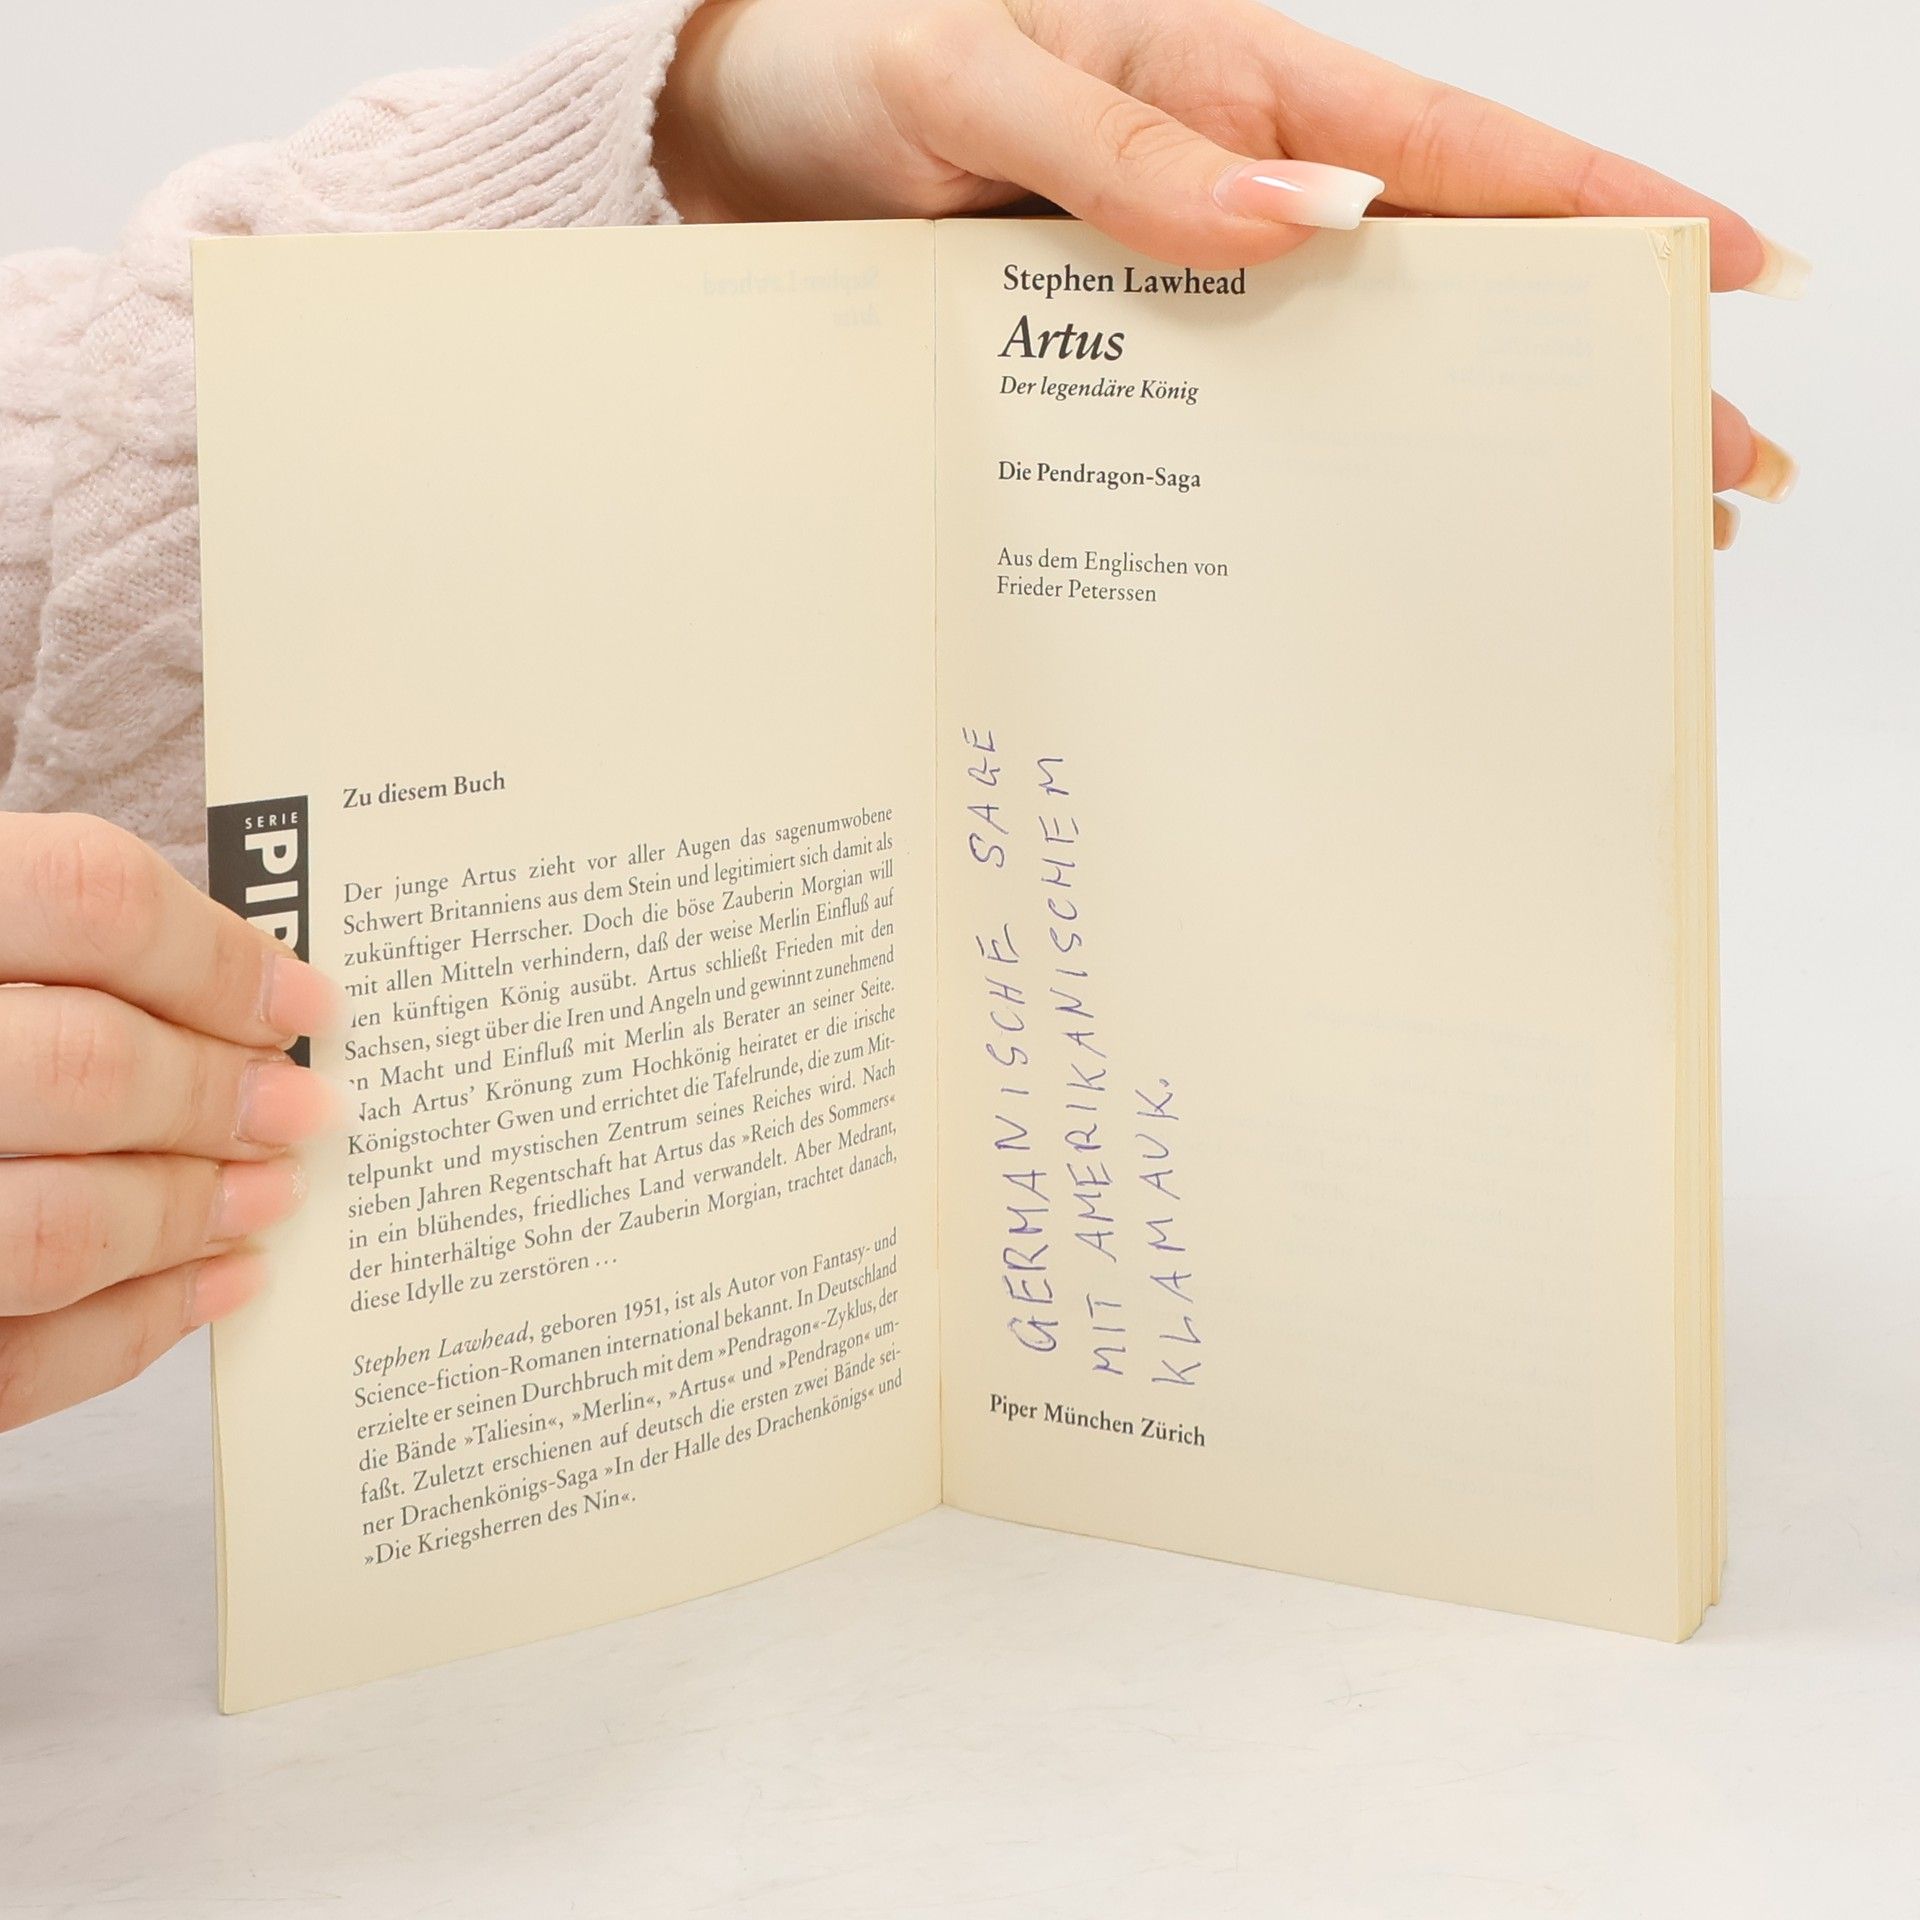 SERIE
Zu diesem Buch
Der junge Artus zieht vor aller Augen das sagenumwobene
Schwert Britanniens aus dem Stein und legitimiert sich damit als
zukünftiger Herrscher. Doch die böse Zauberin Morgian will
mit allen Mitteln verhindern, daß der weise Merlin Einfluß auf
künftigen König ausübt. Artus schließt Frieden mit den
Sachsen, siegt über die Iren und Angeln und gewinnt zunehmend
Macht und Einfluß mit Merlin als Berater an seiner Seite.
Nach Artus' Krönung zum Hochkönig heiratet er die irische
Königstochter Gwen und errichtet die Tafelrunde, die zum Mit-
telpunkt und mystischen Zentrum seines Reiches wird. Nach
sieben Jahren Regentschaft hat Artus das »Reich des Sommers«
in ein blühendes, friedliches Land verwandelt. Aber Medrant,
der hinterhältige Sohn der Zauberin Morgian, trachtet danach,
diese Idylle zu zerstören ...
Stephen Lawhead, geboren 1951, ist als Autor von Fantasy- und
Science-fiction-Romanen international bekannt. In Deutschland
erzielte er seinen Durchbruch mit dem »Pendragon«-Zyklus, der
die Bände »Taliesin«, »Merlin«, »Artus« und »Pendragon« um-
faßt. Zuletzt erschienen auf deutsch die ersten zwei Bände sei-
ner Drachenkönigs-Saga »In der Halle des Drachenkönigs« und
»Die Kriegsherren des Nin«.
Stephen Lawhead
Artus
Der legendäre König
Die Pendragon-Saga
Aus dem Englischen von
Frieder Peterssen
GERMANISCHE SAGE
MIT AMERIKANISCHEM
KLAMAUK.
Piper München Zürich